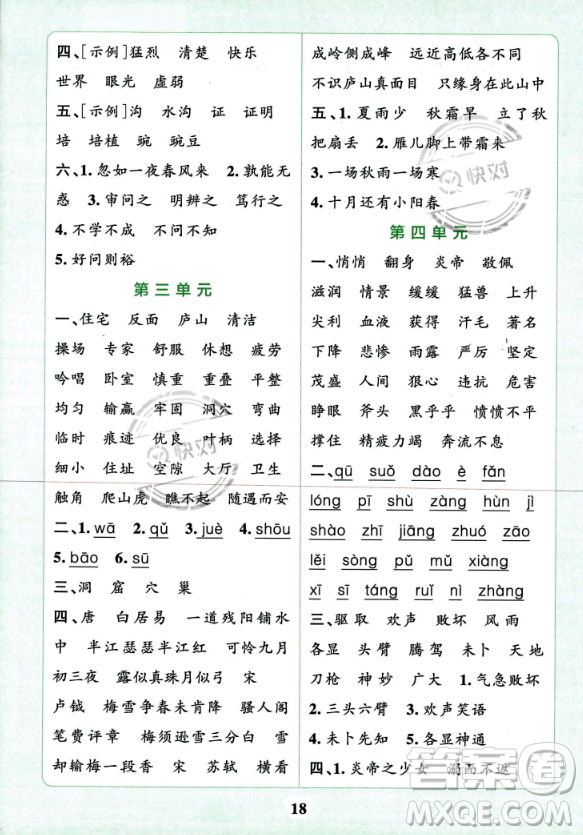 四、[示例]猛烈 清楚 快乐
世界 眼光 虚弱
五、[示例]沟 水沟 证 证明
培 培植 豌 豌豆
六、1.忽如一夜春风来 2.孰能无
惑 3.审问之 明辨之 笃行之
4.不学不成 不问不知
5.好问则裕
第三单元
一、住宅 反面 庐山 清洁
操场 专家 舒服 休想 疲劳
吟唱 卧室 慎重 重叠 平整
均匀 输赢 牢固 洞穴 弯曲
临时 痕迹 优良 叶柄 选择
细小 住址 空隙 大厅 卫生
触角 爬山虎 瞧不起 随遇而安
二、1.wā 2.qǔ 3.juè 4.shōu
5.bāo 6.sū
三、洞 窟 穴 巢
四、唐 白居易 一道残阳铺水
中 半江瑟瑟半江红 可怜九月
初三夜 露似真珠月似弓 宋
卢钺 梅雪争春未肯降 骚人阁
笔费评章 梅须逊雪三分白 雪
却输梅一段香 宋 苏轼 横看
成岭侧成峰 远近高低各不同
不识庐山真面目 只缘身在此山中
五、1.夏雨少 秋霜早 立了秋
把扇丢 2.雁儿脚上带霜来
3.一场秋雨一场寒
4.十月还有小阳春
第四单元
一、悄悄 翻身 炎帝 敬佩
滋润 情景 缓缓 猛兽 上升
尖利 血液 获得 汗毛 著名
下降 悲惨 雨露 严厉 坚定
茂盛 人间 狠心 违抗 危害
睁眼 斧头 黑乎乎 愤愤不平
撑住 精疲力竭 奔流不息
二、qū suǒ dào è fǎn
lóng pī shù zàng hùn jì
shào zhī jiāng zhuó jiě
lěi sòng pǔ mǔ xiàng
xī sī táng ruǐ nì zhàng
三、驱取 欢声 败坏 风雨
各显 头臂 腾驾 未卜 天地
刀枪 神妙 1.气急败坏
2.三头六臂 3.欢声笑语
4.未卜先知 5.各显神通
四、1.炎帝之少女 溺而不返
18
快对
快对
答案圈
MXQE.COM